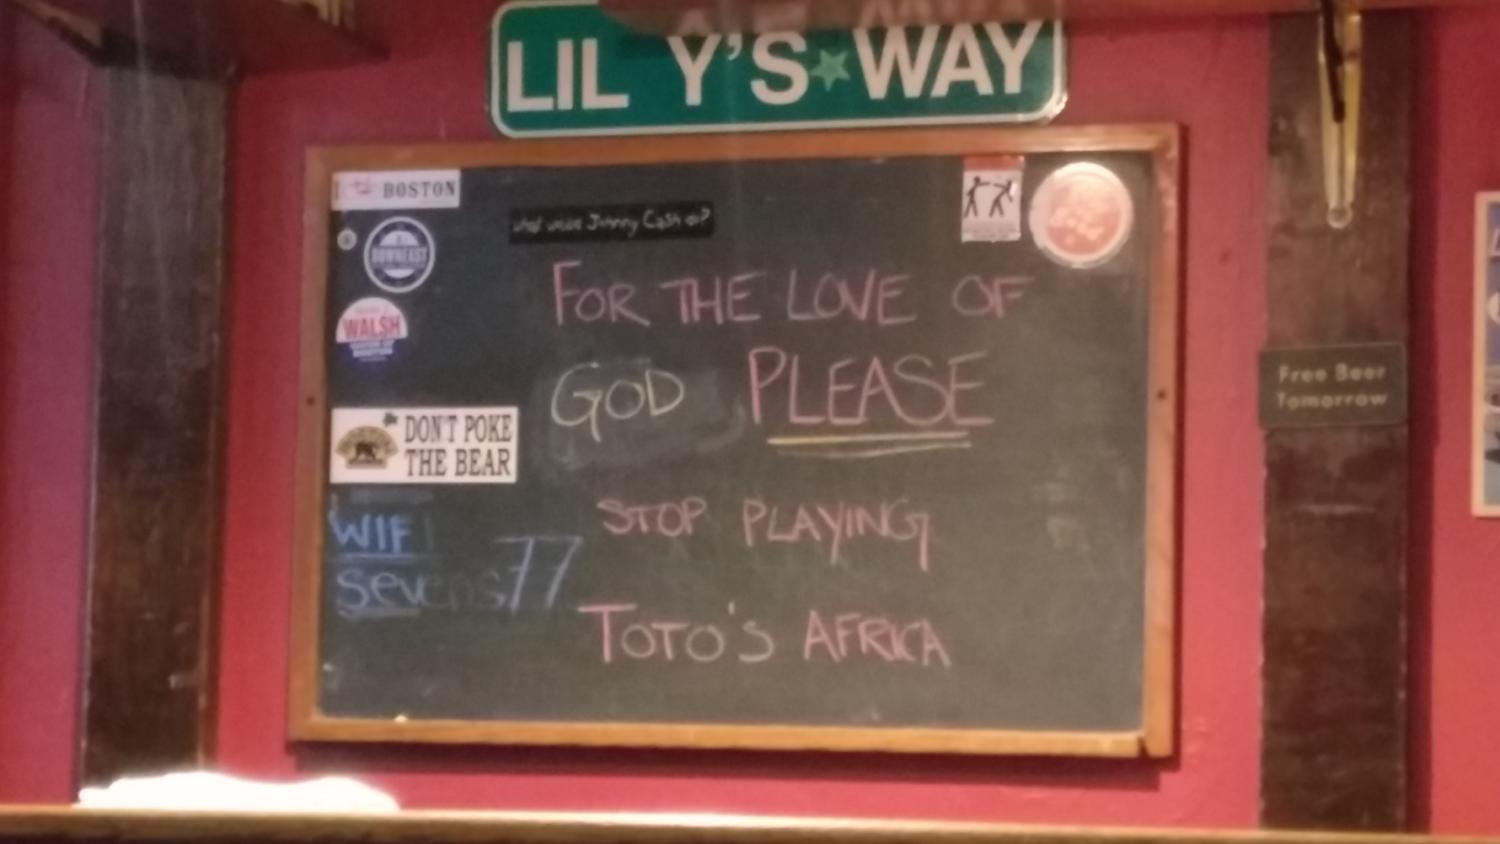 LILY'S WAY
BOSTON
what would Johnny Cash do?
DOWNEAST
WALSH
FOR THE LOVE OF
GOD PLEASE
DON'T POKE
THE BEAR
STOP PLAYING
WIFI
sevens77
TOTO'S AFRICA
Free Beer
Tomorrow